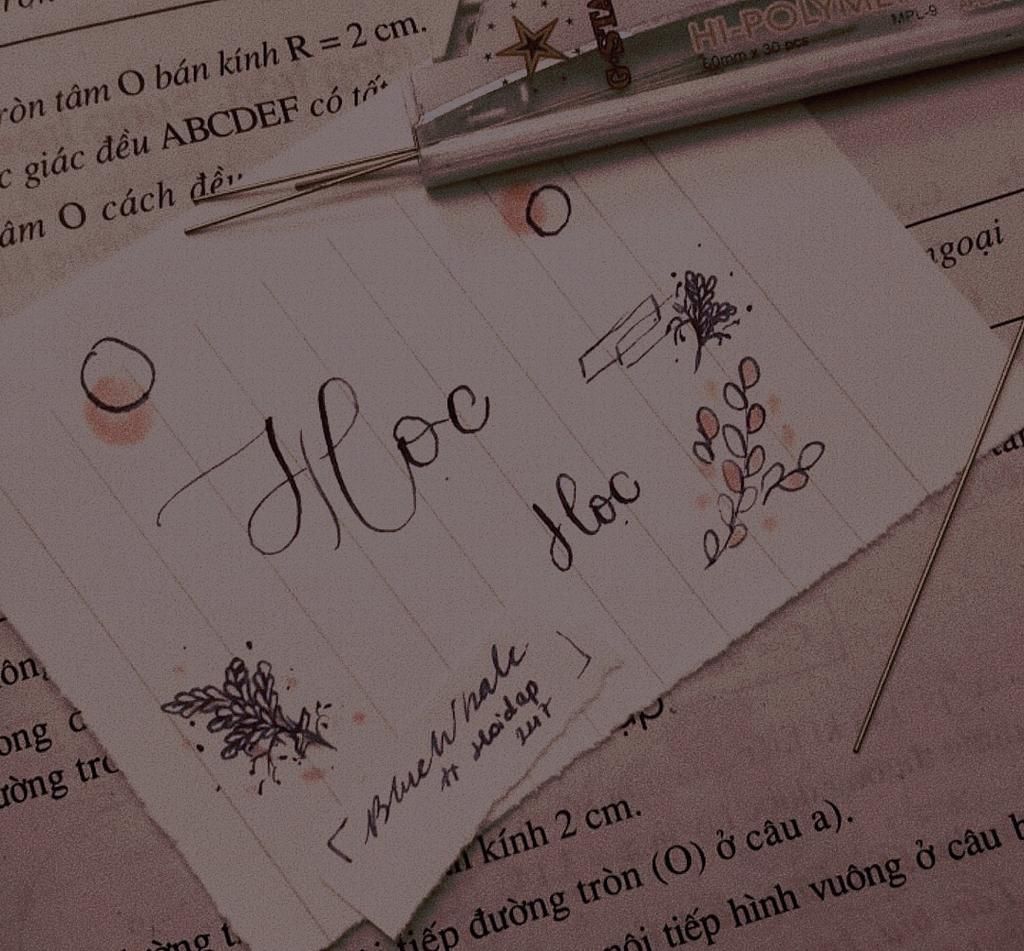 ròn tâm O bán kính R = 2 cm.
c giác đều ABCDEF có tất
âm O cách đều
G-STA
HI-POLYME
60mm x 30 pcs
MPL-9
ngoại
Học
Học
BlueWhale
# Hoidap
247
ong
ường trò
kính 2 cm.
tiếp đường tròn (O) ở câu a).
nội tiếp hình vuông ở câu b